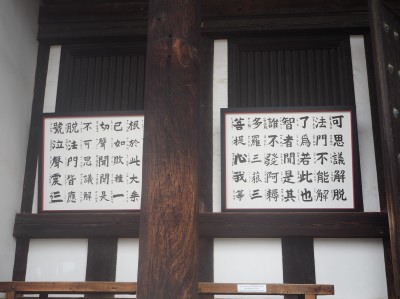 可思議解脱
法門不能解
了爲若此也
智者聞是其
誰不發阿耨
多羅三藐三
菩提心我等
根於此大乗
已如敗種一
切聲聞聞是
不可思議解
脱法門皆應
號泣聲震三